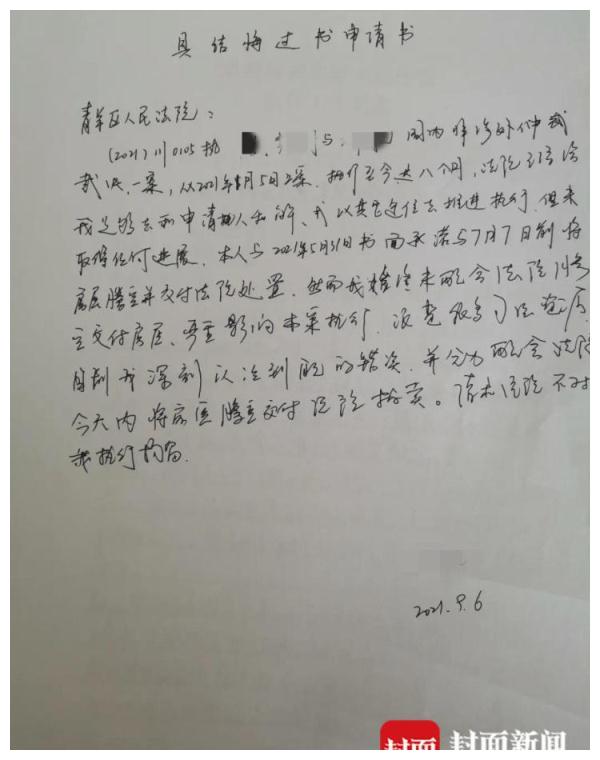 具结悔过书申请书
青羊区人民法院:
(2021)川0105执 与 国内非涉外仲裁
裁决一案,从2021年 月5日立案,执行至今达八个月,法院多次给
我足够去和申请执人和解、我以其它途径去推进执行,但未
取得任何进展。本人与2021年5月31日书面承诺与7月7日前将
房屋腾空并交付法院处置,然而我始终未配合法院腾
空交付房屋、严重影响本案执行,浪费很多司法资源,
目前我深刻认识到我的错误,并全力配合法院
今天内将房屋腾空交付法院拍卖。请求法院不对
我执行拘留。
2021.9.6
封面 封面新闻